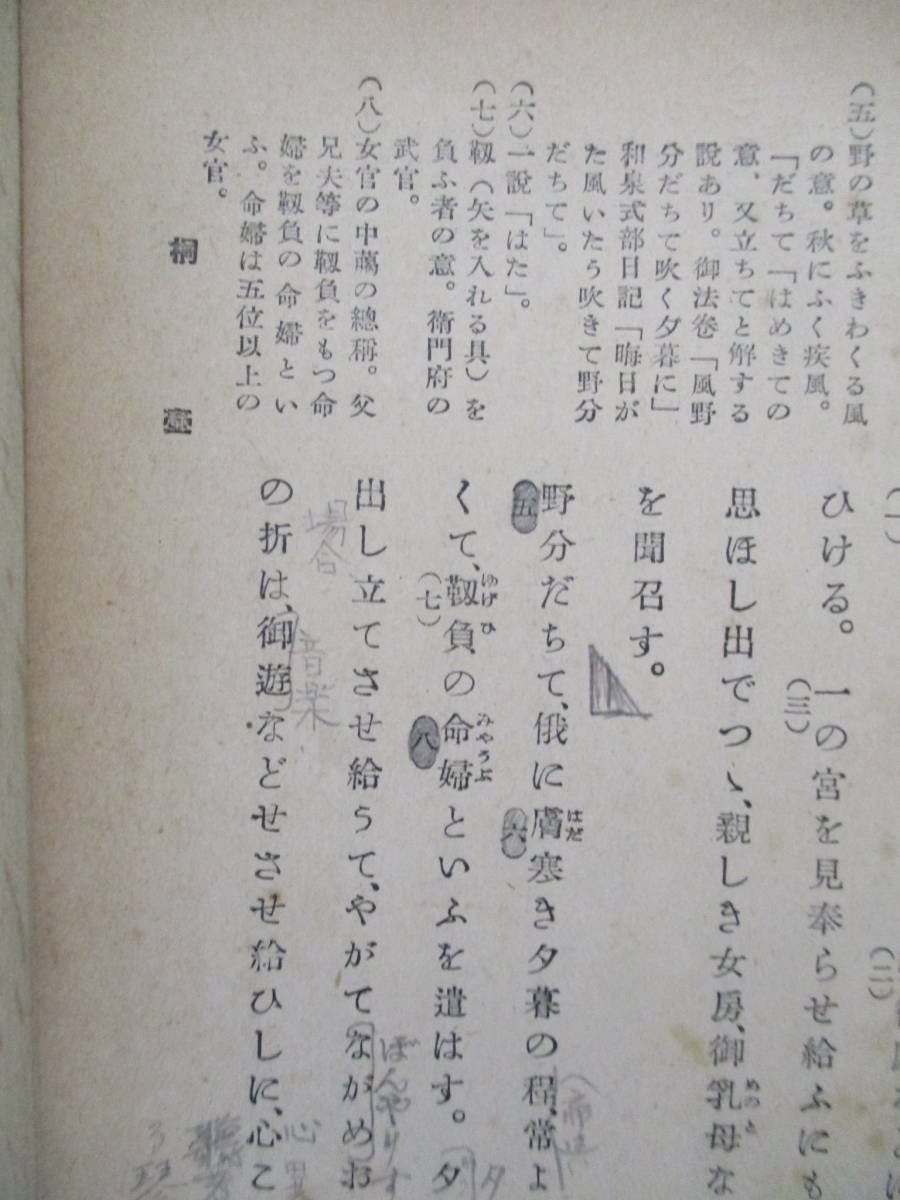 (五)野の草をふきわくる風
の意。秋にふく疾風。
「だちて「はめきての
意、又立ちてと解する
説あり。御法卷「風野
分だちて吹く夕暮に」
和泉式部日記「晦日が
た風いたう吹きて野分
だちて」。
(六)一說「はた」。
(七)靱(矢を入れる具)を
負ふ者の意。衛門府の
武官。
(八)女官の中﨟の總稱。父
兄夫等に靱負をもつ命
婦を靱負の命婦とい
ふ。命婦は五位以上の
女官。
桐
壺
(一)
(二)
ひける。一の宮を見奉らせ給ふにも
(三)
思ほし出でつゝ、親しき女房、御乳母な
めのと
を聞召す。
野分だちて、俄に膚寒き夕暮の程、常よ
はだ
五
六
くて、靱負の命婦といふを遣はす。夕
ゆげひ
みやうぶ
(七)
八
出し立てさせ給うて、やがてながめお
ぼんやりす
場合
の折は、御遊などせさせ給ひしに、心こ
音楽
夕